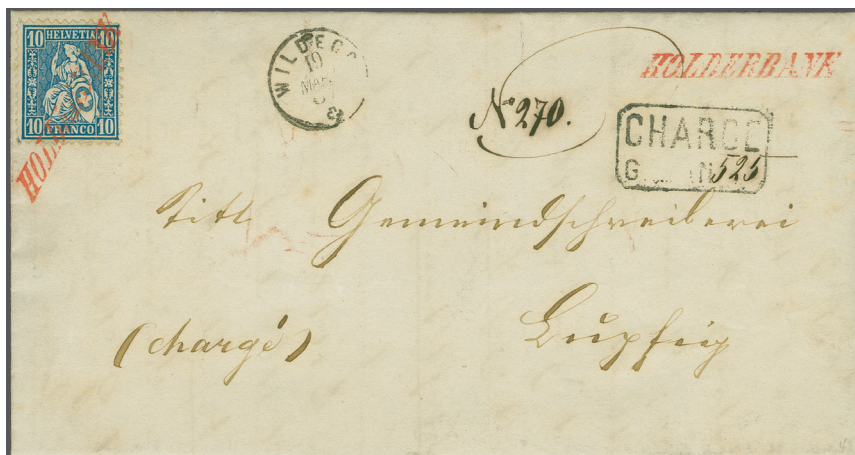 10 HELVETIA 10
10 FRANCO 10
HOLDERBANK
WILDEGG
19
MARZ
HOLDERBANK
No 270.
CHARGÉ
G N 525
Titl. Gemeindschreiberei
(chargé)
Lupfig